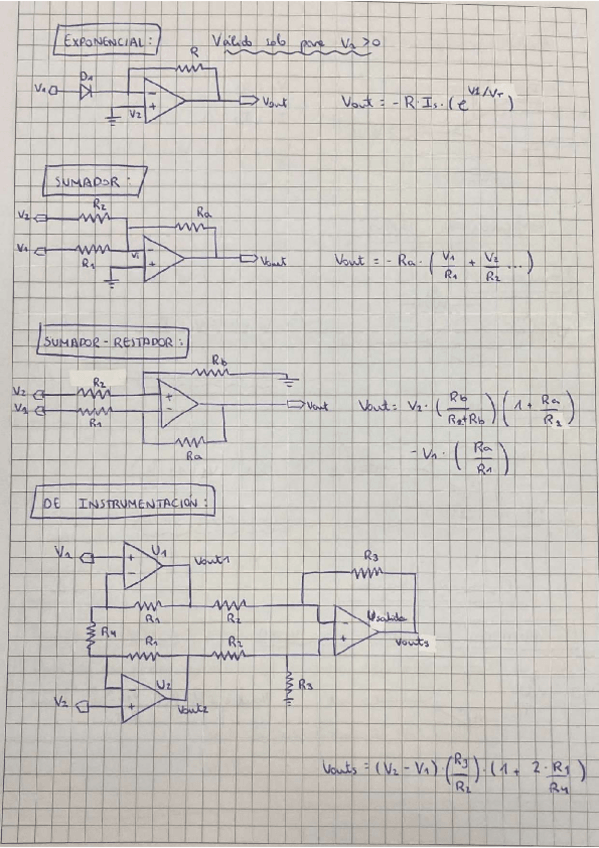 EXPONENCIAL: Válido solo para V1 > 0
R
D1
V1
V2
Vout
Vout = - R · Is · (e^V1/VT)
SUMADOR:
R2 Ra
V2
V1
R1 Vi
Vout
Vout = - Ra · (V1/R1 + V2/R2 ...)
SUMADOR - RESTADOR:
Rb
V2 R2
V1 R1
Vout
Ra
Vout = V2 · (Rb/R2+Rb) (1 + Ra/R1)
- V1 · (Ra/R1)
DE INSTRUMENTACIÓN:
V1 U1 Vout1 R3
R1 R2
R4 R1 R2 Usalida
Vouts
V2 U2 Vout2 R3
Vouts = (V2 - V1) (R3/R2) · (1 + 2 · R1/R4)